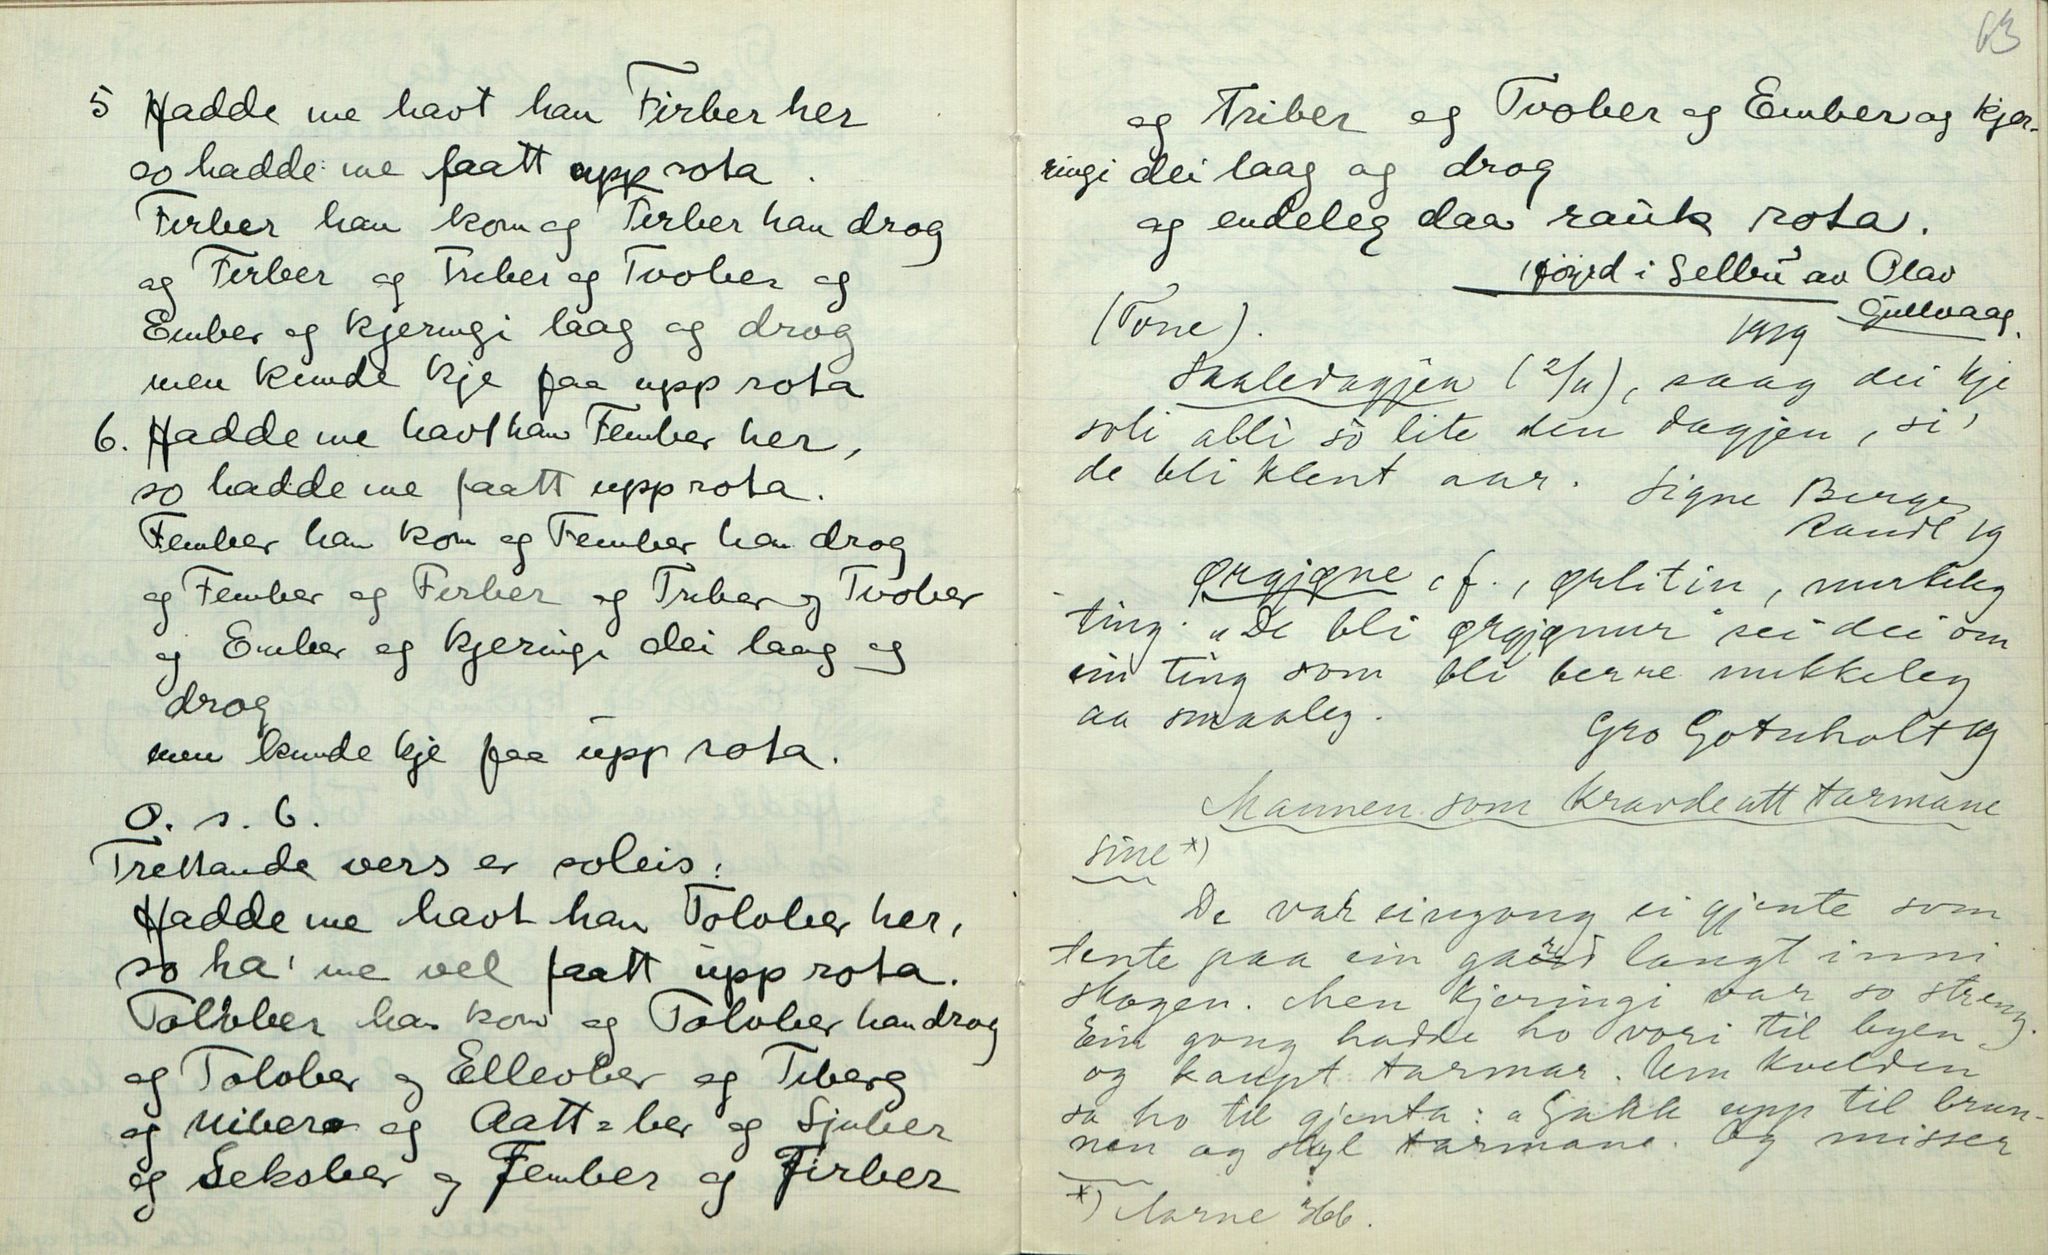 5 Hadde me havt han Firber her
so hadde me faatt upp rota.
Firber han kom og Firber han drog
og Firber og Triber og Tvober og
Ember og kjeringi laag og drog
men kunde kje faa upp rota
6. Hadde me havt han Fember her,
so hadde me faatt upp rota.
Fember han kom og Fember han drog
og Fember og Firber og Triber og Tvober
og Ember og kjeringi dei laag og
drog
men kunde kje faa upp rota.
O. s. b.
Trettande vers er soleis:
Hadde me havt han Tolvber her,
so ha' me vel faatt upp rota.
Tolvber han kom og Tolvber han drog
og Tolvber og Ellevber og Tiber og
og Niber og Aatt-ber og Sjuber
og Seksber og Fember og Firber
63
og Triber og Tvober og Ember og kjer-
ringi dei laag og drog
og endeleg daa rauk rota.
i Selbu av Olav
Gullvaag.
(Tone). 1919
(2/11), saag dei kje
soli alli so lite den dagjen, si'
de bli klent aar. Signe Berge,
Raudl 19
Ørgjøne, f., ørlitin, nurkeleg
ting. "De bli ørgjønur" sei dei om
ein ting som bli berre nukkeleg
aa smaaleg.
Gro Gotuholt 19
Mannen som kravde att tarmane
sine *)
De var eingong ei gjente som
tente paa ein gard langt inni
skogen. Men kjeringi var so streng.
Ein gong hadde ho vori til byen
og kaupt tarmar. Um kvelden
sa ho til gjenta: "Gakk upp til brun-
nen og skyl tarmane. Og misser
*) Aarne 366.